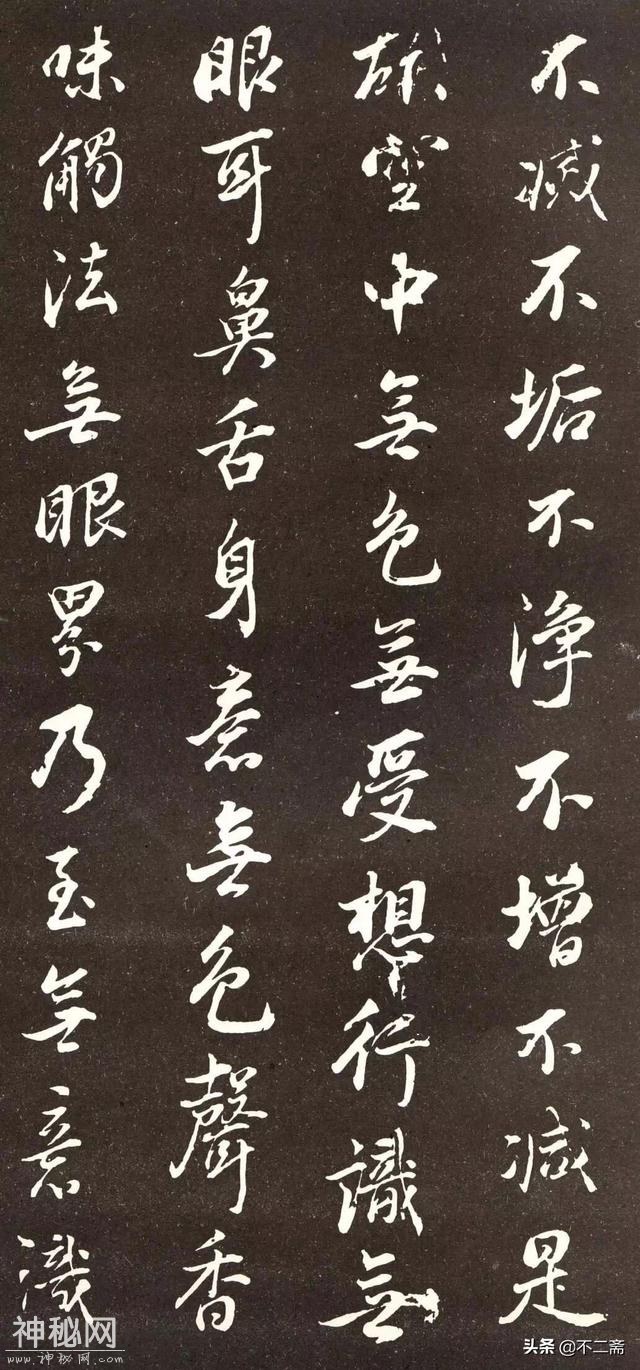 不滅不垢不淨不增不減是
故空中無色無受想行識無
眼耳鼻舌身意無色聲香
味觸法無眼界乃至無意識
神秘网
www.神秘网.com
头条 @不二斋